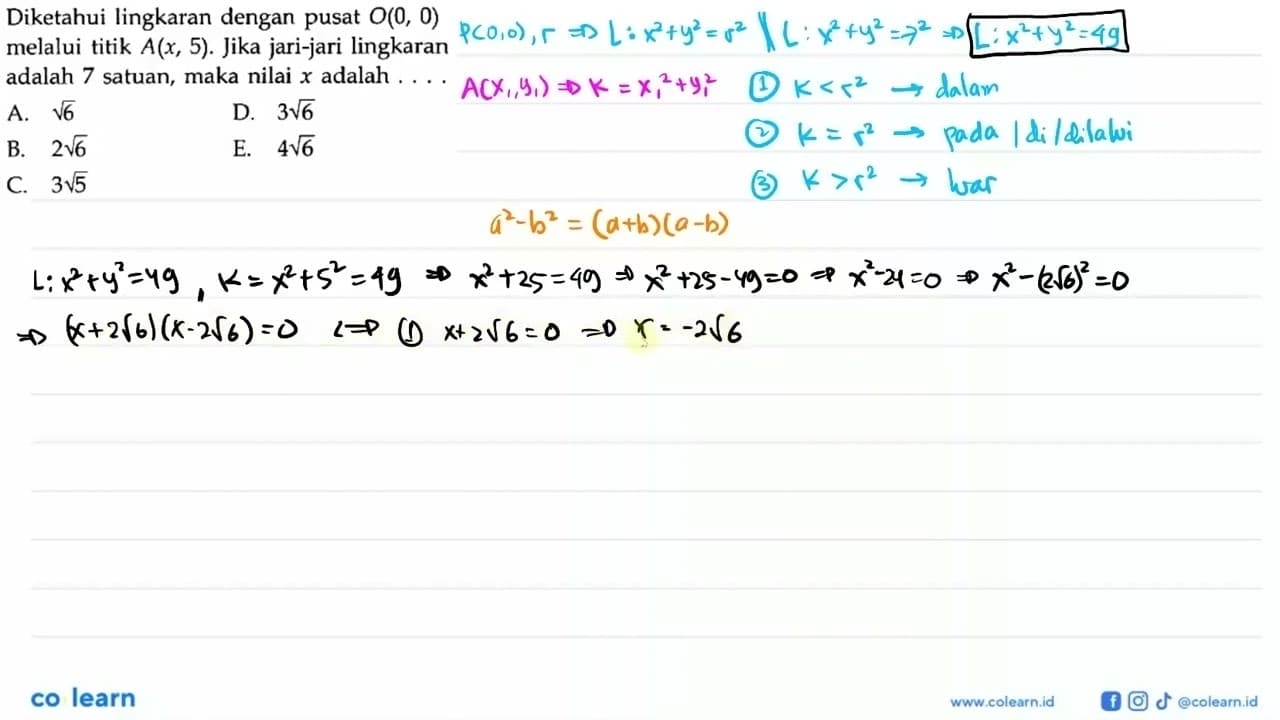 Diketahui lingkaran dengan pusat O(0, 0)
melalui titik A(x, 5). Jika jari-jari lingkaran
adalah 7 satuan, maka nilai x adalah . . . .
A. √6
D. 3√6
B. 2√6
E. 4√6
C. 3√5
P(0,0), r ⇒ L: x²+y²=r² || L: x²+y²=7² ⇒ L: x²+y²=49
A(x₁,y₁) ⇒ K = x₁²+y₁²
① K < r² → dalam
② K = r² → pada / di / dilalui
③ K > r² → luar
a²-b² = (a+b)(a-b)
L: x²+y²=49, K = x²+5² = 49 ⇒ x²+25=49 ⇒ x²+25-49=0 ⇒ x²-24=0 ⇒ x²-(2√6)²=0
⇒ (x+2√6)(x-2√6)=0 ⇔ ① x+2√6=0 ⇒ x = -2√6
co learn
www.colearn.id
@colearn.id